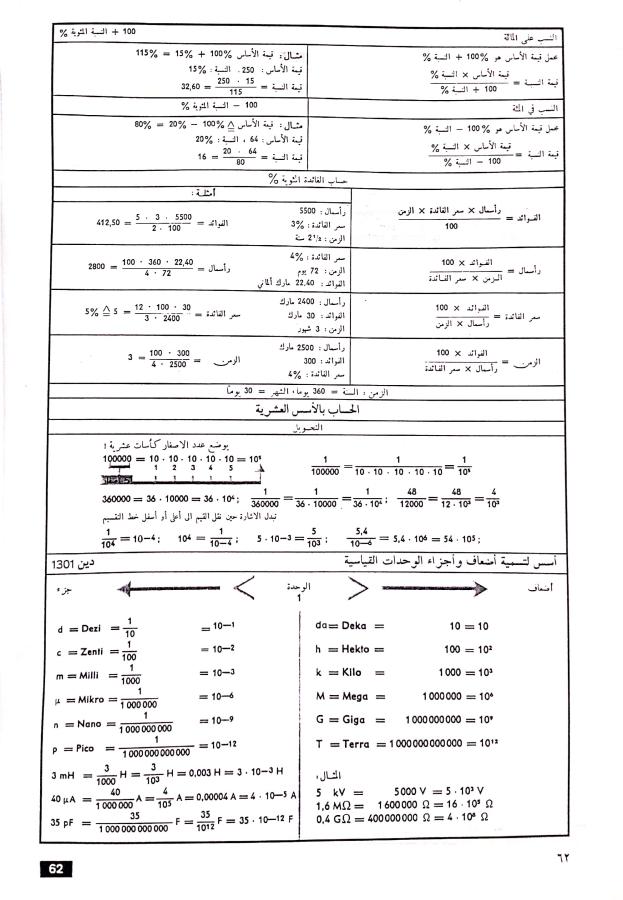 النسب على المائة
100 + النسبة المئوية %
عمل قيمة الأساس هو 100% + النسبة %
قيمة النسبة = قيمة الأساس × النسبة % / 100 + النسبة %
مثال: قيمة الأساس 100% + 15% = 115%
قيمة الأساس: 250 ، النسبة: 15%
قيمة النسبة = 250 · 15 / 115 = 32,60
النسب في المئة
100 − النسبة المئوية %
عمل قيمة الأساس هو 100% − النسبة %
قيمة النسبة = قيمة الأساس × النسبة % / 100 − النسبة %
مثال: قيمة الأساس ≙ 100% − 20% = 80%
قيمة الأساس: 64 ، النسبة: 20%
قيمة النسبة = 20 · 64 / 80 = 16
حساب الفائدة المئوية %
أمثلة:
الفوائد = رأسمال × سعر الفائدة × الزمن / 100
رأسمال: 5500
سعر الفائدة: 3%
الزمن: 2 1/2 سنة
الفوائد = 5 · 3 · 5500 / 2 · 100 = 412,50
رأسمال = الفوائد × 100 / الزمن × سعر الفائدة
سعر الفائدة: 4%
الزمن: 72 يوم
الفوائد: 22,40 مارك ألماني
رأسمال = 100 · 360 · 22,40 / 4 · 72 = 2800
سعر الفائدة = الفوائد × 100 / رأسمال × الزمن
رأسمال: 2400 مارك
الفوائد: 30 مارك
الزمن: 3 شهور
سعر الفائدة = 12 · 100 · 30 / 3 · 2400 = 5 ≙ 5%
الزمن = الفوائد × 100 / رأسمال × سعر الفائدة
رأسمال: 2500 مارك
الفوائد: 300
سعر الفائدة: 4%
الزمن = 100 · 300 / 4 · 2500 = 3
الزمن: السنة = 360 يوما، الشهر = 30 يوماً
الحساب بالأسس العشرية
التحويل
يوضع عدد الاصفار كأسات عشرية:
100000 = 10 · 10 · 10 · 10 · 10 = 10⁵
1 2 3 4 5
1/100000 = 1/10 · 10 · 10 · 10 · 10 = 1/10⁵
360000 = 36 · 10000 = 36 · 10⁴; 1/360000 = 1/36 · 10000 = 1/36 · 10⁴; 48/12000 = 48/12 · 10³ = 4/10³
تبدل الاشارة حين نقل القيم الى أعلى أو أسفل خط التقسيم
1/10⁴ = 10−4; 10⁴ = 1/10−4; 5 · 10−3 = 5/10³; 5,4/10−6 = 5,4 · 10⁶ = 54 · 10⁵;
أسس لتسمية أضعاف وأجزاء الوحدات القياسية
دين 1301
أضعاف
الوحدة
1
جزء
d = Dezi = 1/10 = 10−1
c = Zenti = 1/100 = 10−2
m = Milli = 1/1000 = 10−3
μ = Mikro = 1/1 000 000 = 10−6
n = Nano = 1/1 000 000 000 = 10−9
p = Pico = 1/1 000 000 000 000 = 10−12
3 mH = 3/1000 H = 3/10³ H = 0,003 H = 3 · 10−3 H
40 μA = 40/1 000 000 A = 4/10⁵ A = 0,00004 A = 4 · 10−5 A
35 pF = 35/1 000 000 000 000 F = 35/10¹² F = 35 · 10−12 F
da = Deka = 10 = 10
h = Hekto = 100 = 10²
k = Kilo = 1000 = 10³
M = Mega = 1 000 000 = 10⁶
G = Giga = 1 000 000 000 = 10⁹
T = Terra = 1 000 000 000 000 = 10¹²
المثال:
5 kV = 5000 V = 5 · 10³ V
1,6 MΩ = 1 600 000 Ω = 16 · 10⁵ Ω
0,4 GΩ = 400 000 000 Ω = 4 · 10⁸ Ω
٦٢
62